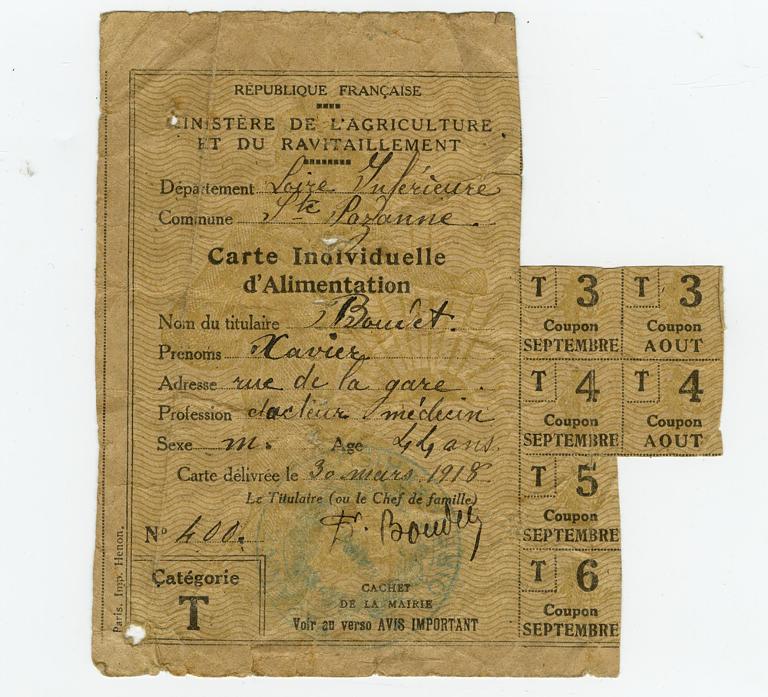 RÉPUBLIQUE FRANÇAISE
MINISTÈRE DE L'AGRICULTURE
ET DU RAVITAILLEMENT
Département Loire Inférieure
Commune Ste Pazanne.
Carte Individuelle
d'Alimentation
Nom du titulaire Boudet.
Prenoms Xavier
Adresse rue de la gare.
Profession docteur médecin
Sexe m. Age 44 ans
Carte délivrée le 30 mars 1918
Le Titulaire (ou le Chef de famille)
Dr. Boudet
No 400.
Çatégorie
T
CACHET
DE LA MAIRIE
Voir au verso AVIS IMPORTANT
Paris. Imp. Henon.
T 3
Coupon
SEPTEMBRE
T 3
Coupon
AOUT
T 4
Coupon
SEPTEMBRE
T 4
Coupon
AOUT
T 5
Coupon
SEPTEMBRE
T 6
Coupon
SEPTEMBRE